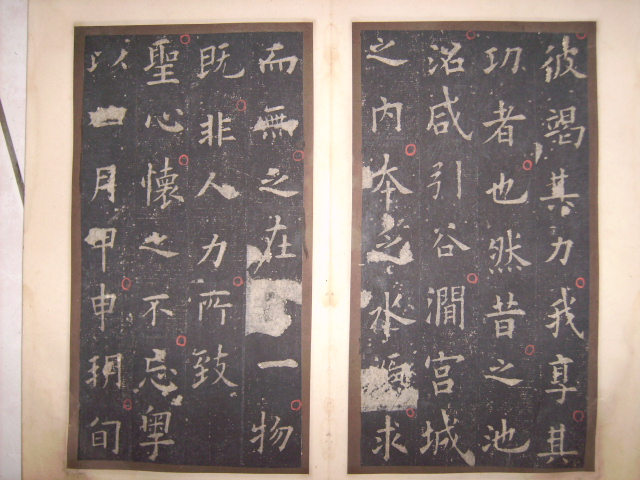 彼竭其力我享其
功者也然昔之池
沼咸引谷澗宮城
之内本乏水源求
而無之在一物
既非人力所致
聖心懷之不忘粵
以一月甲申朔旬